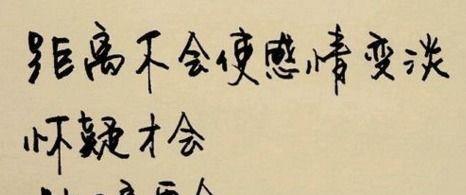 距离不会使感情变淡
怀疑才会